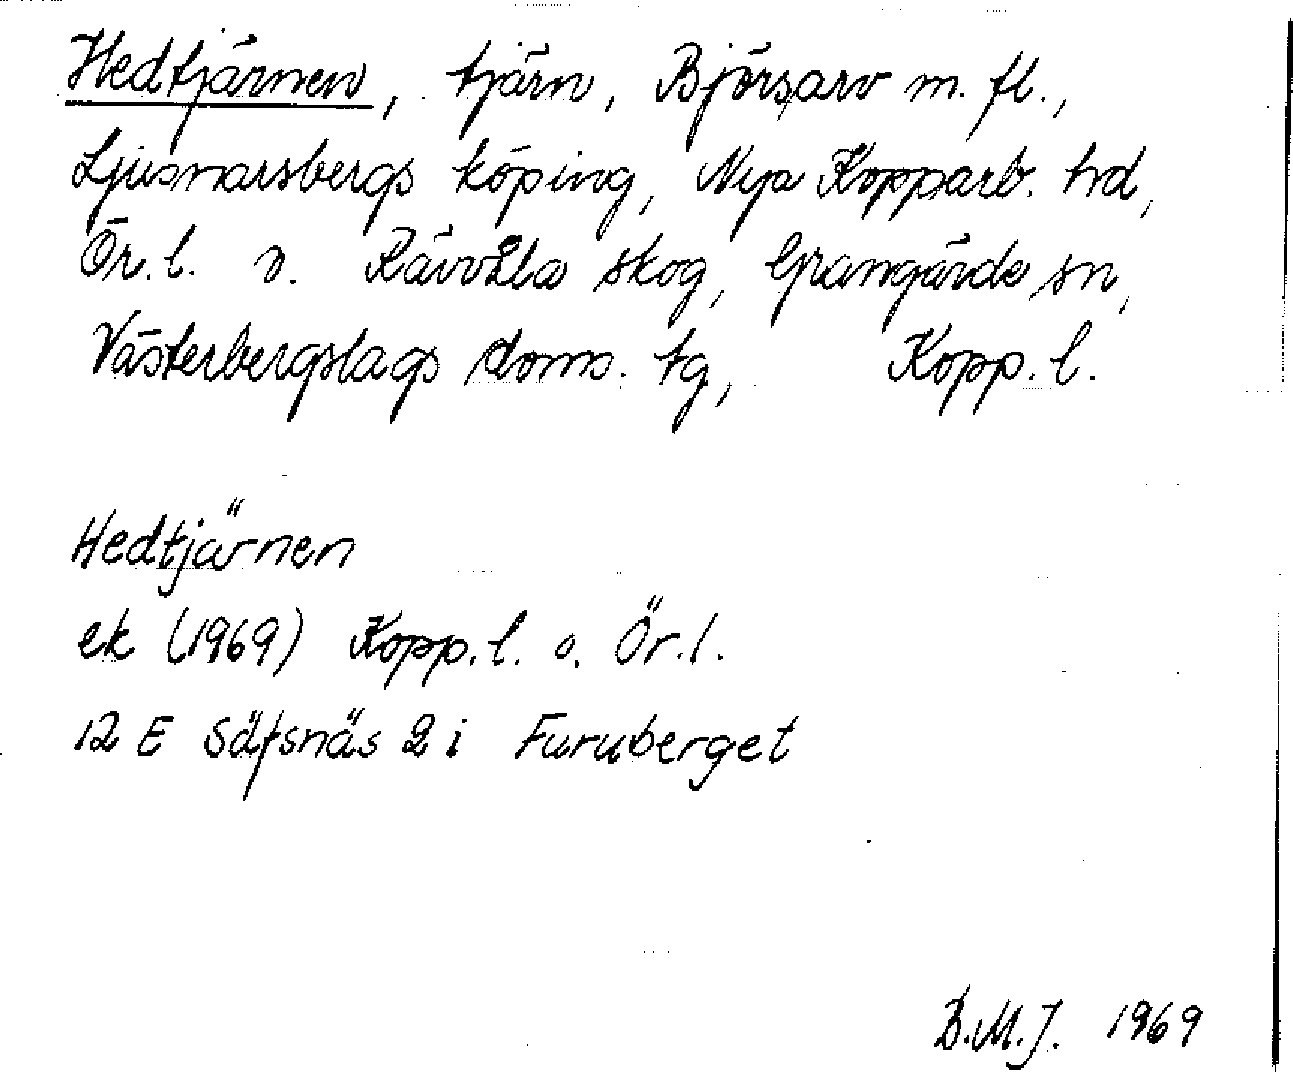 Hedtjärnen, tjärn, Björsarv m. fl.,
Ljusnarsbergs köping, Nya Kopparb. hd,
Ör. l. o. Rävvåla skog, Grangärde sn,
Västerbergslags doms. tg, Kopp. l.
Hedtjärnen
ek (1969) Kopp. l. o. Ör. l.
12 E Säfsnäs 2 i Furuberget
B.M.J. 1969